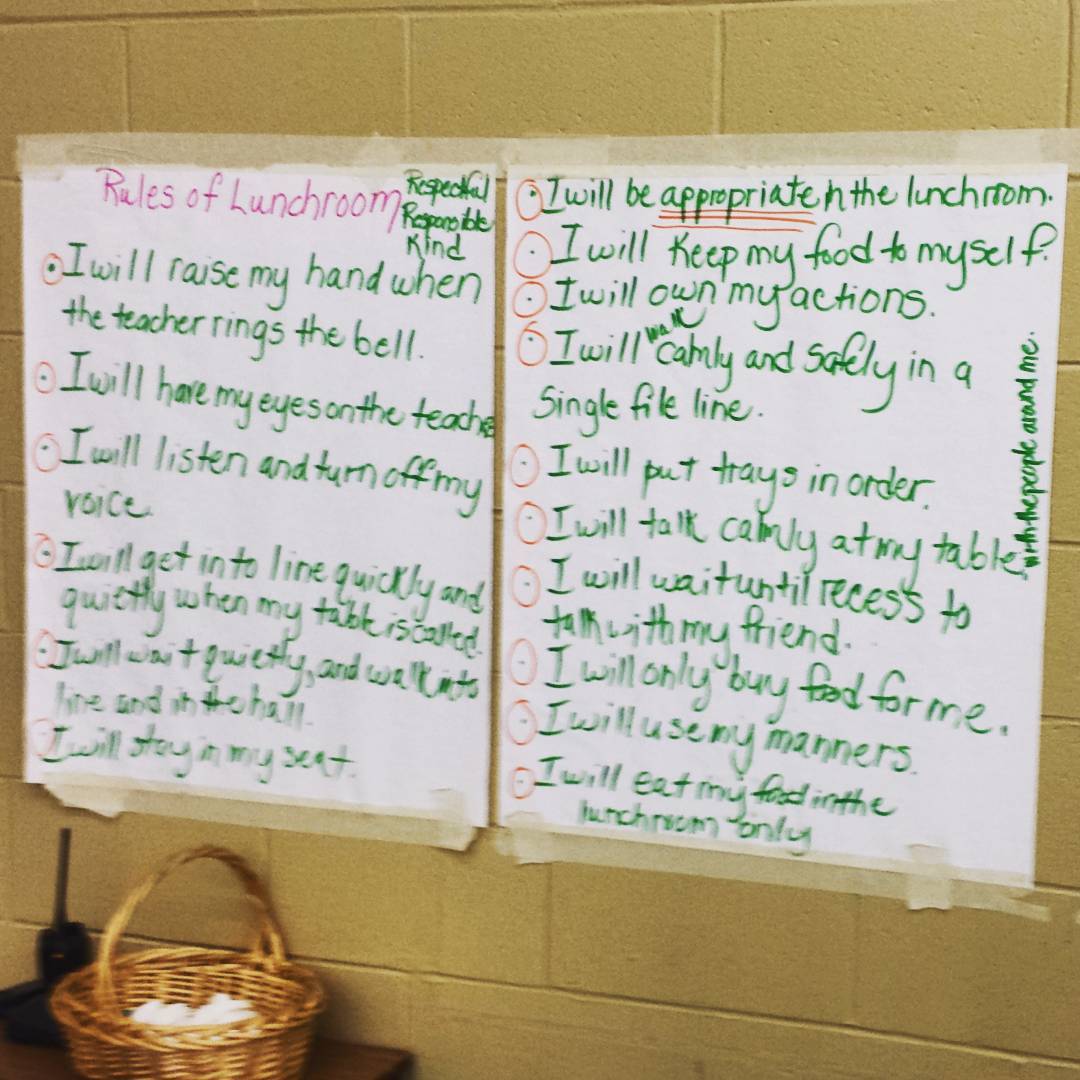 Rules of Lunchroom
Respectful
Responsible
Kind
I will raise my hand when
the teacher rings the bell.
I will have my eyes on the teacher
I will listen and turn off my
voice.
I will get into line quickly and
quietly when my table is called.
I will wait quietly, and walk into
line and in the hall.
I will stay in my seat.
I will be appropriate in the lunchroom.
I will keep my food to myself.
I will own my actions.
I will walk calmly and safely in a
single file line.
I will put trays in order.
I will talk calmly at my table
with the people around me.
I will wait until recess to
talk with my friend.
I will only buy food for me.
I will use my manners.
I will eat my food in the
lunchroom only